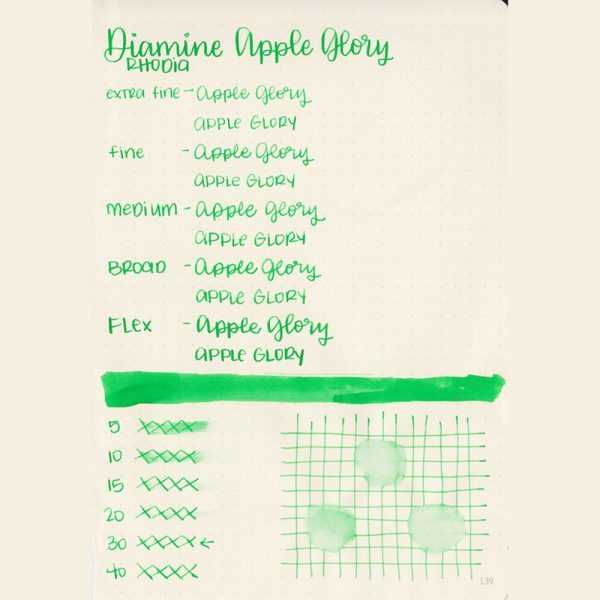 Diamine Apple Glory
RHODIA
extra fine - Apple Glory
APPLE GLORY
fine - Apple Glory
APPLE GLORY
medium - Apple Glory
APPLE GLORY
BROAD - Apple Glory
APPLE GLORY
FLEX - Apple Glory
APPLE GLORY
5 XXXX
10 XXXX
15 XXXX
20 XXXX
30 XXXX ←
40 XXXX
139